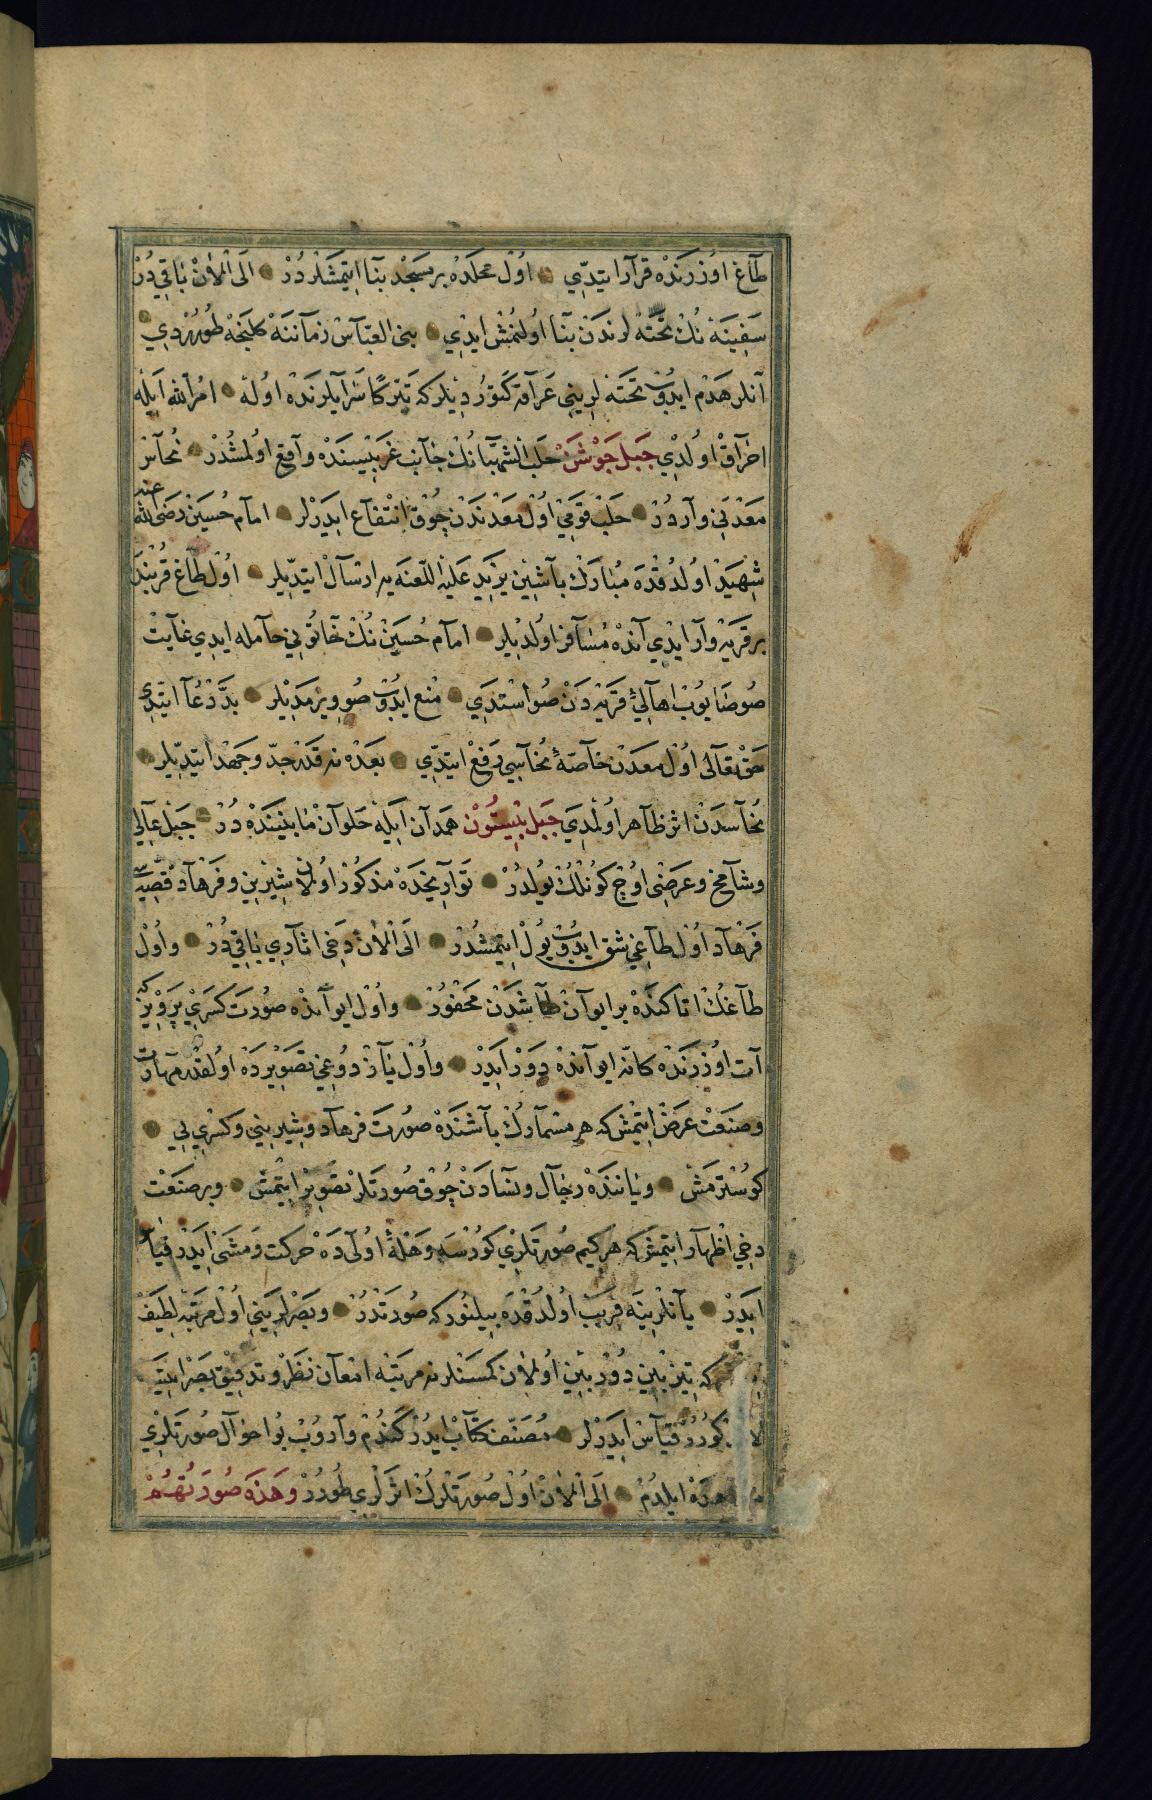 طاغ اوزرنده قرار ايتدى اول محلده بر مسجد بنا ايتمشلردر الى الان باقيدر
سفينه نك تخته لرندن بنا اولنمش ايدى بنى العباس زماننه كلنجه طوررdى
آنلر هدم ايدوب تخته لرينى عراقه كتوردilر كه تبركا سرايلرنده اوله امر الله ايله
احراق اولدى جبل جوشن حلب الشهبانك جانب غربيسنده واقع اولمشدر نحاس
معدنى واردر حلب قومى اول معدندن چوق انتفاع ايدرلر امام حسين رضى الله عنه
شهيد اولدقده مبارك باشين يزيد عليه اللعنه يه ارسال ايتديلر اول طاغ قربنده
بر قريه وار ايدى آنده مسافر اولديلر امام حسينك خاتونى حامله ايدى غايت
صوصايوب اهالئ قريه دن صو استدى منع ايدوب صو ويرمديلر بد دعا ايتدى
حق تعالى اول معدن خاصۀ نحاسى رفع ايتدى بعده نه قدر جد و جهد ايتديلر
نحاسدن اثر ظاهر اولمدى جبل بيستون همدان ايله حلوان مابيننده در جبل عالى
وشامخ وعرضى اوچ كونلك يولدر تواريخده مذكور اولان شيرين وفرهاد قصه سى
فرهاد اول طاغى شق ايدوب يول ايتمشدر الى الان دخى اثارى باقيدر واول
طاغك اتاكنده بر ايوان طاشدن محفور واول ايوانده صورت كسرى پرويز كه
آت اوزرنده كانه ايوانده دور ايدر واول نياز دوغى تصويرده اولقدر مهارت
وصنعت عرض ايتمش كه هر مسمارك باشنده صورت فرهاد وشيرينى وكسرى يى
كوسترمش وياننده رجال ونسادن چوق صورتلر تصوير ايتمش وبر صنعت
دخى اظهار ايتمش كه هر كيم صورتلرى كورسه وهلۀ اولاده حركت ومشى ايدر قياس
ايدر يانلرينه قريب اولدقده بيلنور كه صورتدر وبصرلرينى اول مرتبه لطيف
كه تيزبين دوربين اولان كمسنلر نه مرتبه امعان نظر وتدقيق بصر ايتسه
كورر قياس ايدرلر مصنف كتاب ايدر كندم واروب بو احوال صورتلرى
ايلدم الى الان اول صورتلرك اثرلرى طورر وهذه صورتهم